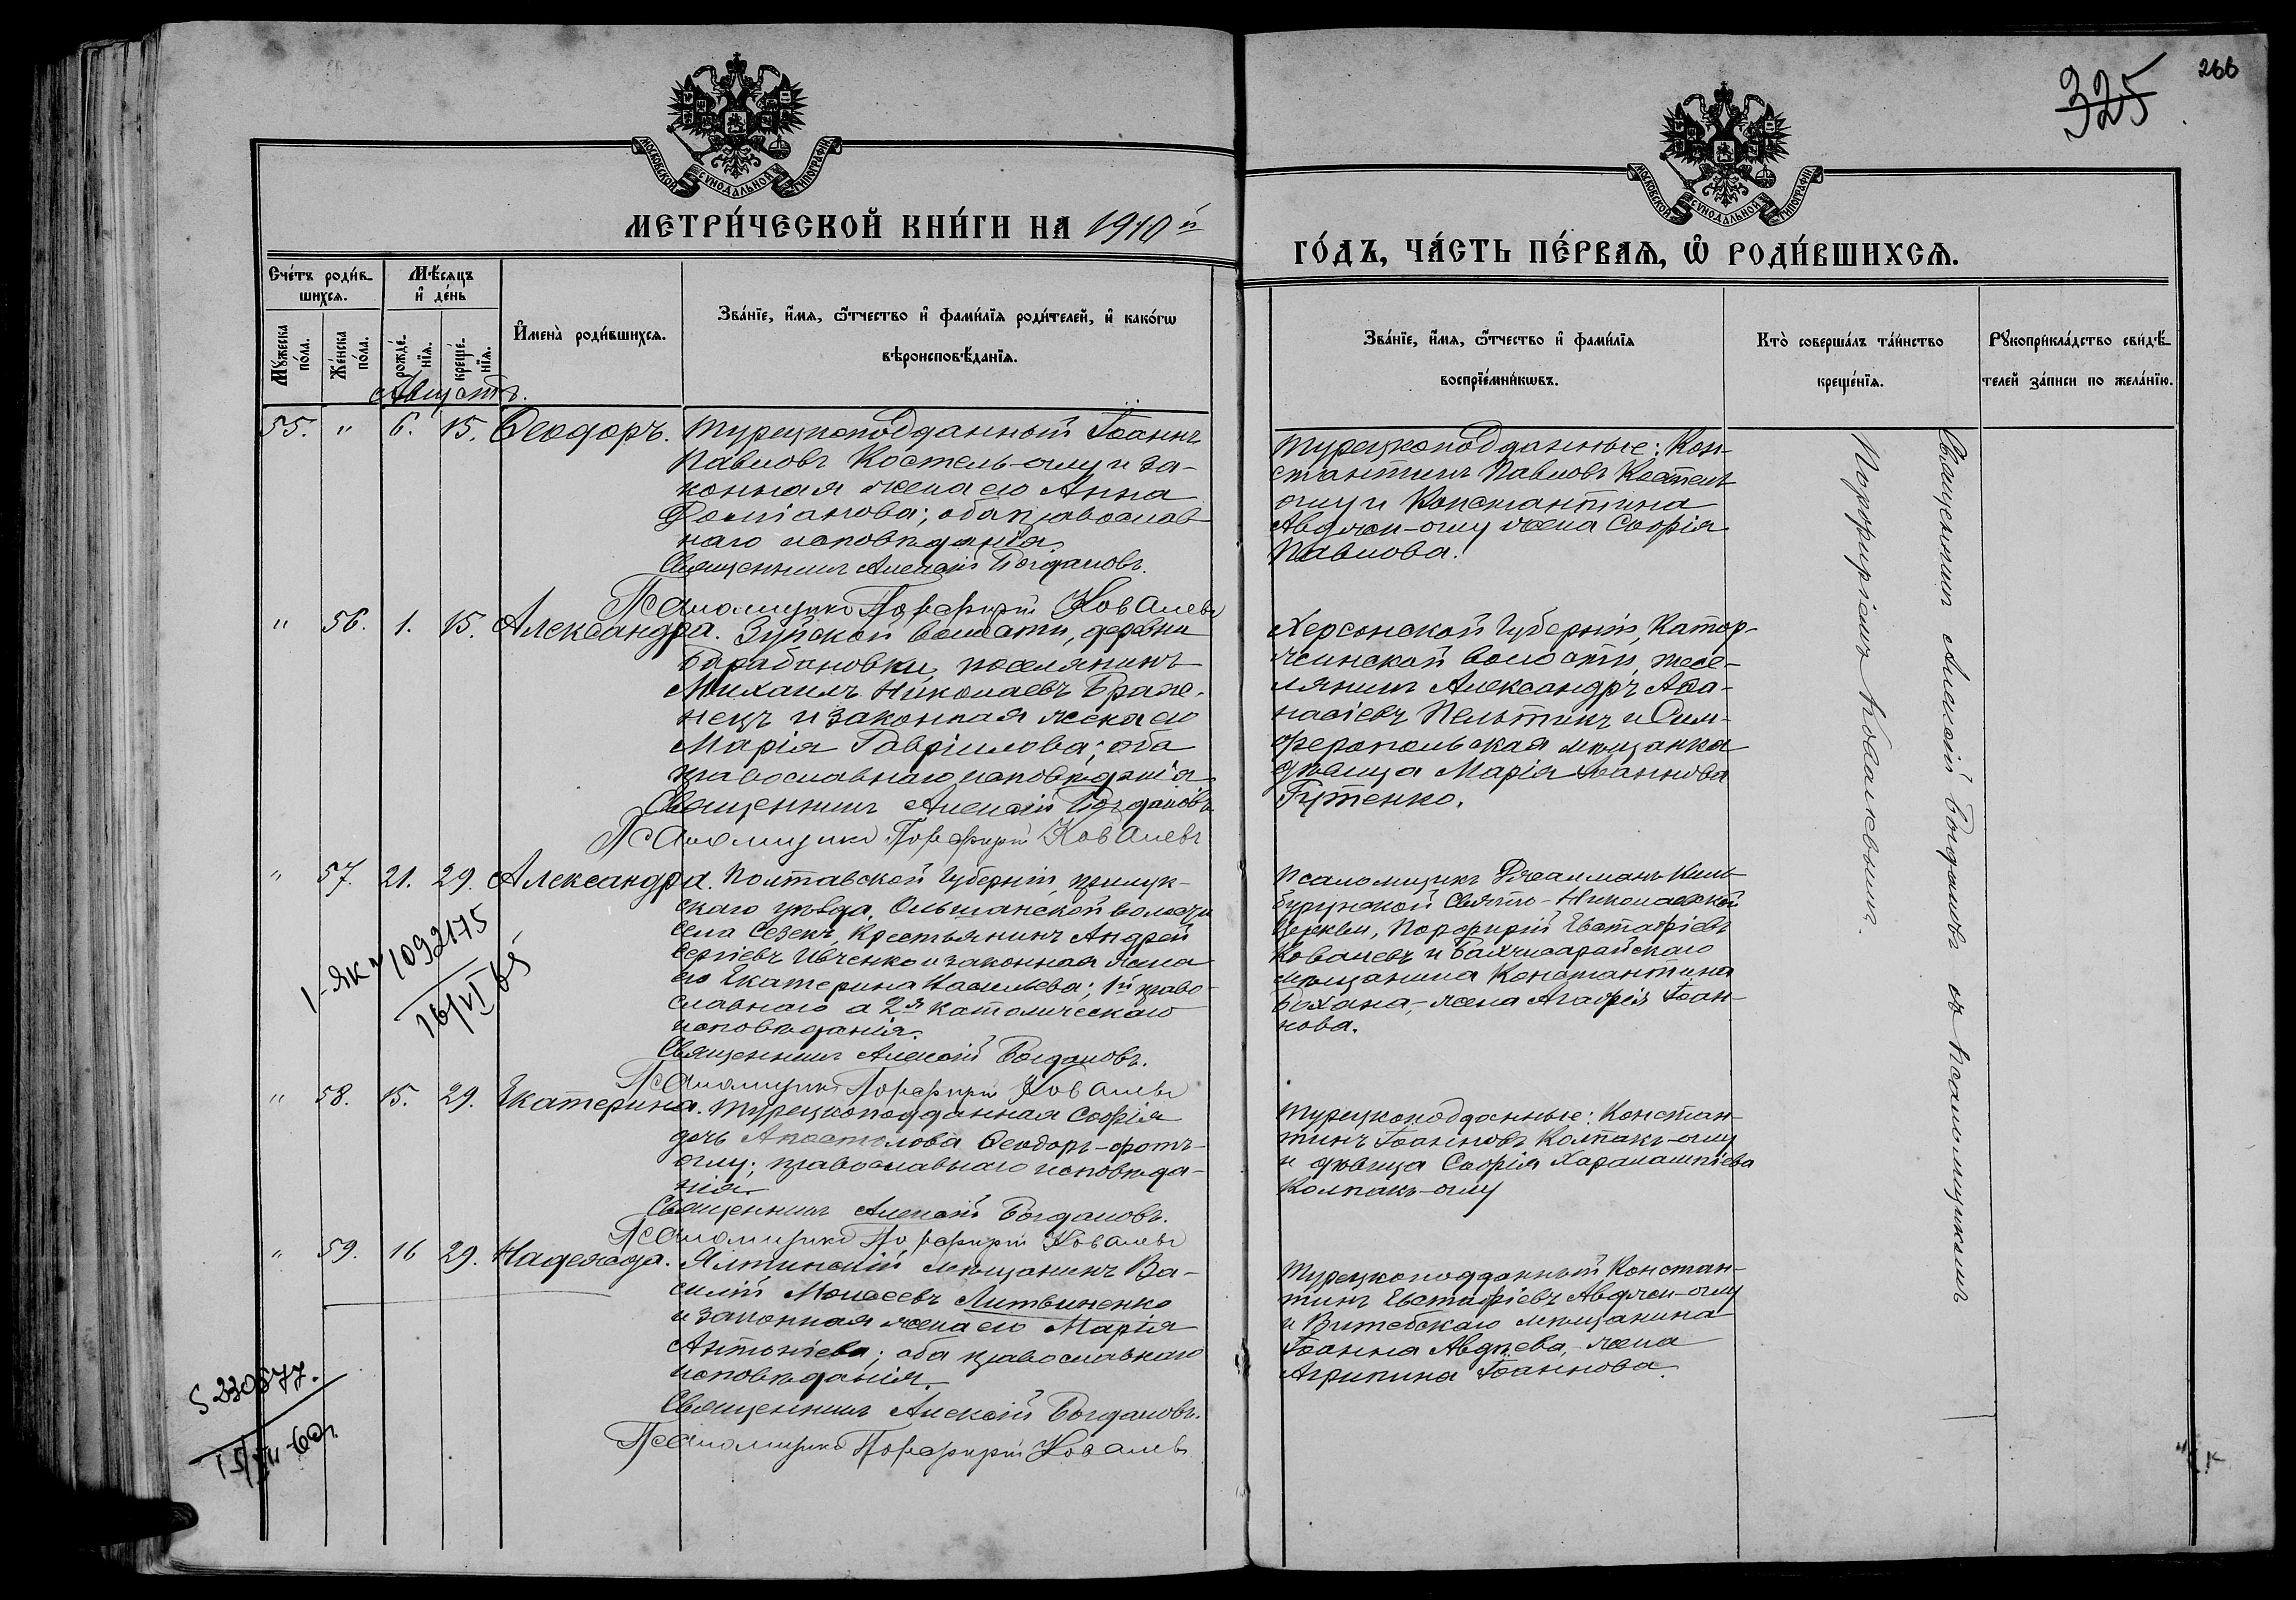 325
266
МОСКОВСКОЙ СѴНОДАЛЬНОЙ ТИПОГРАФІИ
МОСКОВСКОЙ СѴНОДАЛЬНОЙ ТИПОГРАФІИ
МЕТРИ́ЧЕСКОЙ КНИ́ГИ НА 1910й
ГО́ДЪ, ЧА́СТЬ ПЕ́РВАЯ, Ѽ РОДИ́ВШИХСЯ.
Сче́тъ роди́в-
шихся.
Мѣ́сяцъ
и҆ де́нь
Мꙋ́жеска
по́ла.
Же́нска
по́ла.
рожде́-
нїя.
креще́-
нїя.
И҆мена̀ роди́вшихся.
Зва́нїе, и҆́мя, ѻ҆́тчество и҆ фами́лїя роди́телей, и҆ како́гѡ
вѣроисповѣ́данїя.
Зва́нїе, и҆́мя, ѻ҆́тчество и҆ фами́лїя
воспрїе́мникѡвъ.
Кто̀ соверша́лъ та́инство
креще́нїя.
Рꙋкоприкла́дство свидѣ́-
телей за́писи по жела́нїю.
Августъ.
55. " 6. 15. Ѳеодоръ. Турецкоподданный Іоаннъ
Павловъ Костель-оглу и за-
конная жена его Анна
; оба православ-
наго исповѣданія.
Священникъ Алексій Богдановъ.
Псаломщикъ Порфирій Ковалевъ
Турецкоподданные: Кон-
стантинъ Павловъ Костель
оглу и Константина
Авджи-оглу жена Софія
Павлова.
" 56. 1. 15. Александра. Зуйской волости, деревни
Барабановки, поселянинъ
Михаилъ Николаевъ Браже-
нецъ и законная жена его
Марія Гавріилова; оба
православнаго исповѣданія
Священникъ Алексій Богдановъ
Псаломщикъ Порфирій Ковалевъ
Херсонской Губерніи, Катор-
жинской волости, посе-
лянинъ Александръ Аѳа-
насіевъ Пельтинъ и Сим-
феропольская мѣщанка
дѣвица Марія Іоаннова
Гутенко.
" 57. 21. 29. Александра. Полтавской Губерніи, прилук-
скаго уѣзда, Ольшанской волости
села Сезекъ, Крестьянинъ Андрей
Сергіевъ Ивченко и законная жена
его Екатерина Васильева; 1й право-
славнаго а 2я католическаго
исповѣданія.
Священникъ Алексій Богдановъ.
Псаломщикъ Порфирій Ковалевъ
Псаломщикъ Джалманъ Киль-
бурунской Свято-Николаевской
Церкви, Порфирій Евстафіевъ
Ковалевъ и Бахчисарайскаго
мѣщанина Константина
Бохана,-жена Агафія Іоан-
нова.
1-ЯК № 1092175
16/VI 65
" 58. 15. 29. Екатерина. Турецкоподданная Софія
дочь Апостолова Ѳеодоръ-фотъ-
оглу; православнаго исповѣда-
нія.
Священникъ Алексій Богдановъ.
Псаломщикъ Порфирій Ковалевъ
Турецкоподданные: Констан-
тинъ Іоанновъ Колпакъ-оглу
и дѣвица Софія Харалампіева
Колпакъ-оглу
" 59. 16 29. Надежда. Ялтинскій мѣщанинъ Ва-
силій Моисеевъ Литвиненко
и законная жена его Марія
Антоніева; оба православнаго
исповѣданія.
Священникъ Алексій Богдановъ.
Псаломщикъ Порфирій Ковалевъ
Турецкоподданный Констан-
тинъ Евстафіевъ Авджи-оглу
и Витебскаго мѣщанина
Іоанна Авдѣева,-жена
Агрипина Іоаннова.
Священникъ Алексій Богдановъ съ Псаломщикомъ
Порфиріемъ Ковалевымъ.